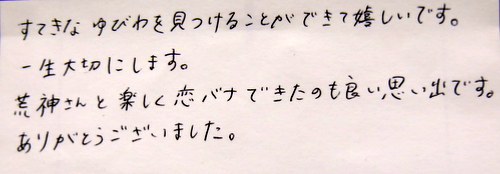 すてきなゆびわを見つけることができて嬉しいです。
一生大切にします。
荒神さんと楽しく恋バナできたのも良い思い出です。
ありがとうございました。